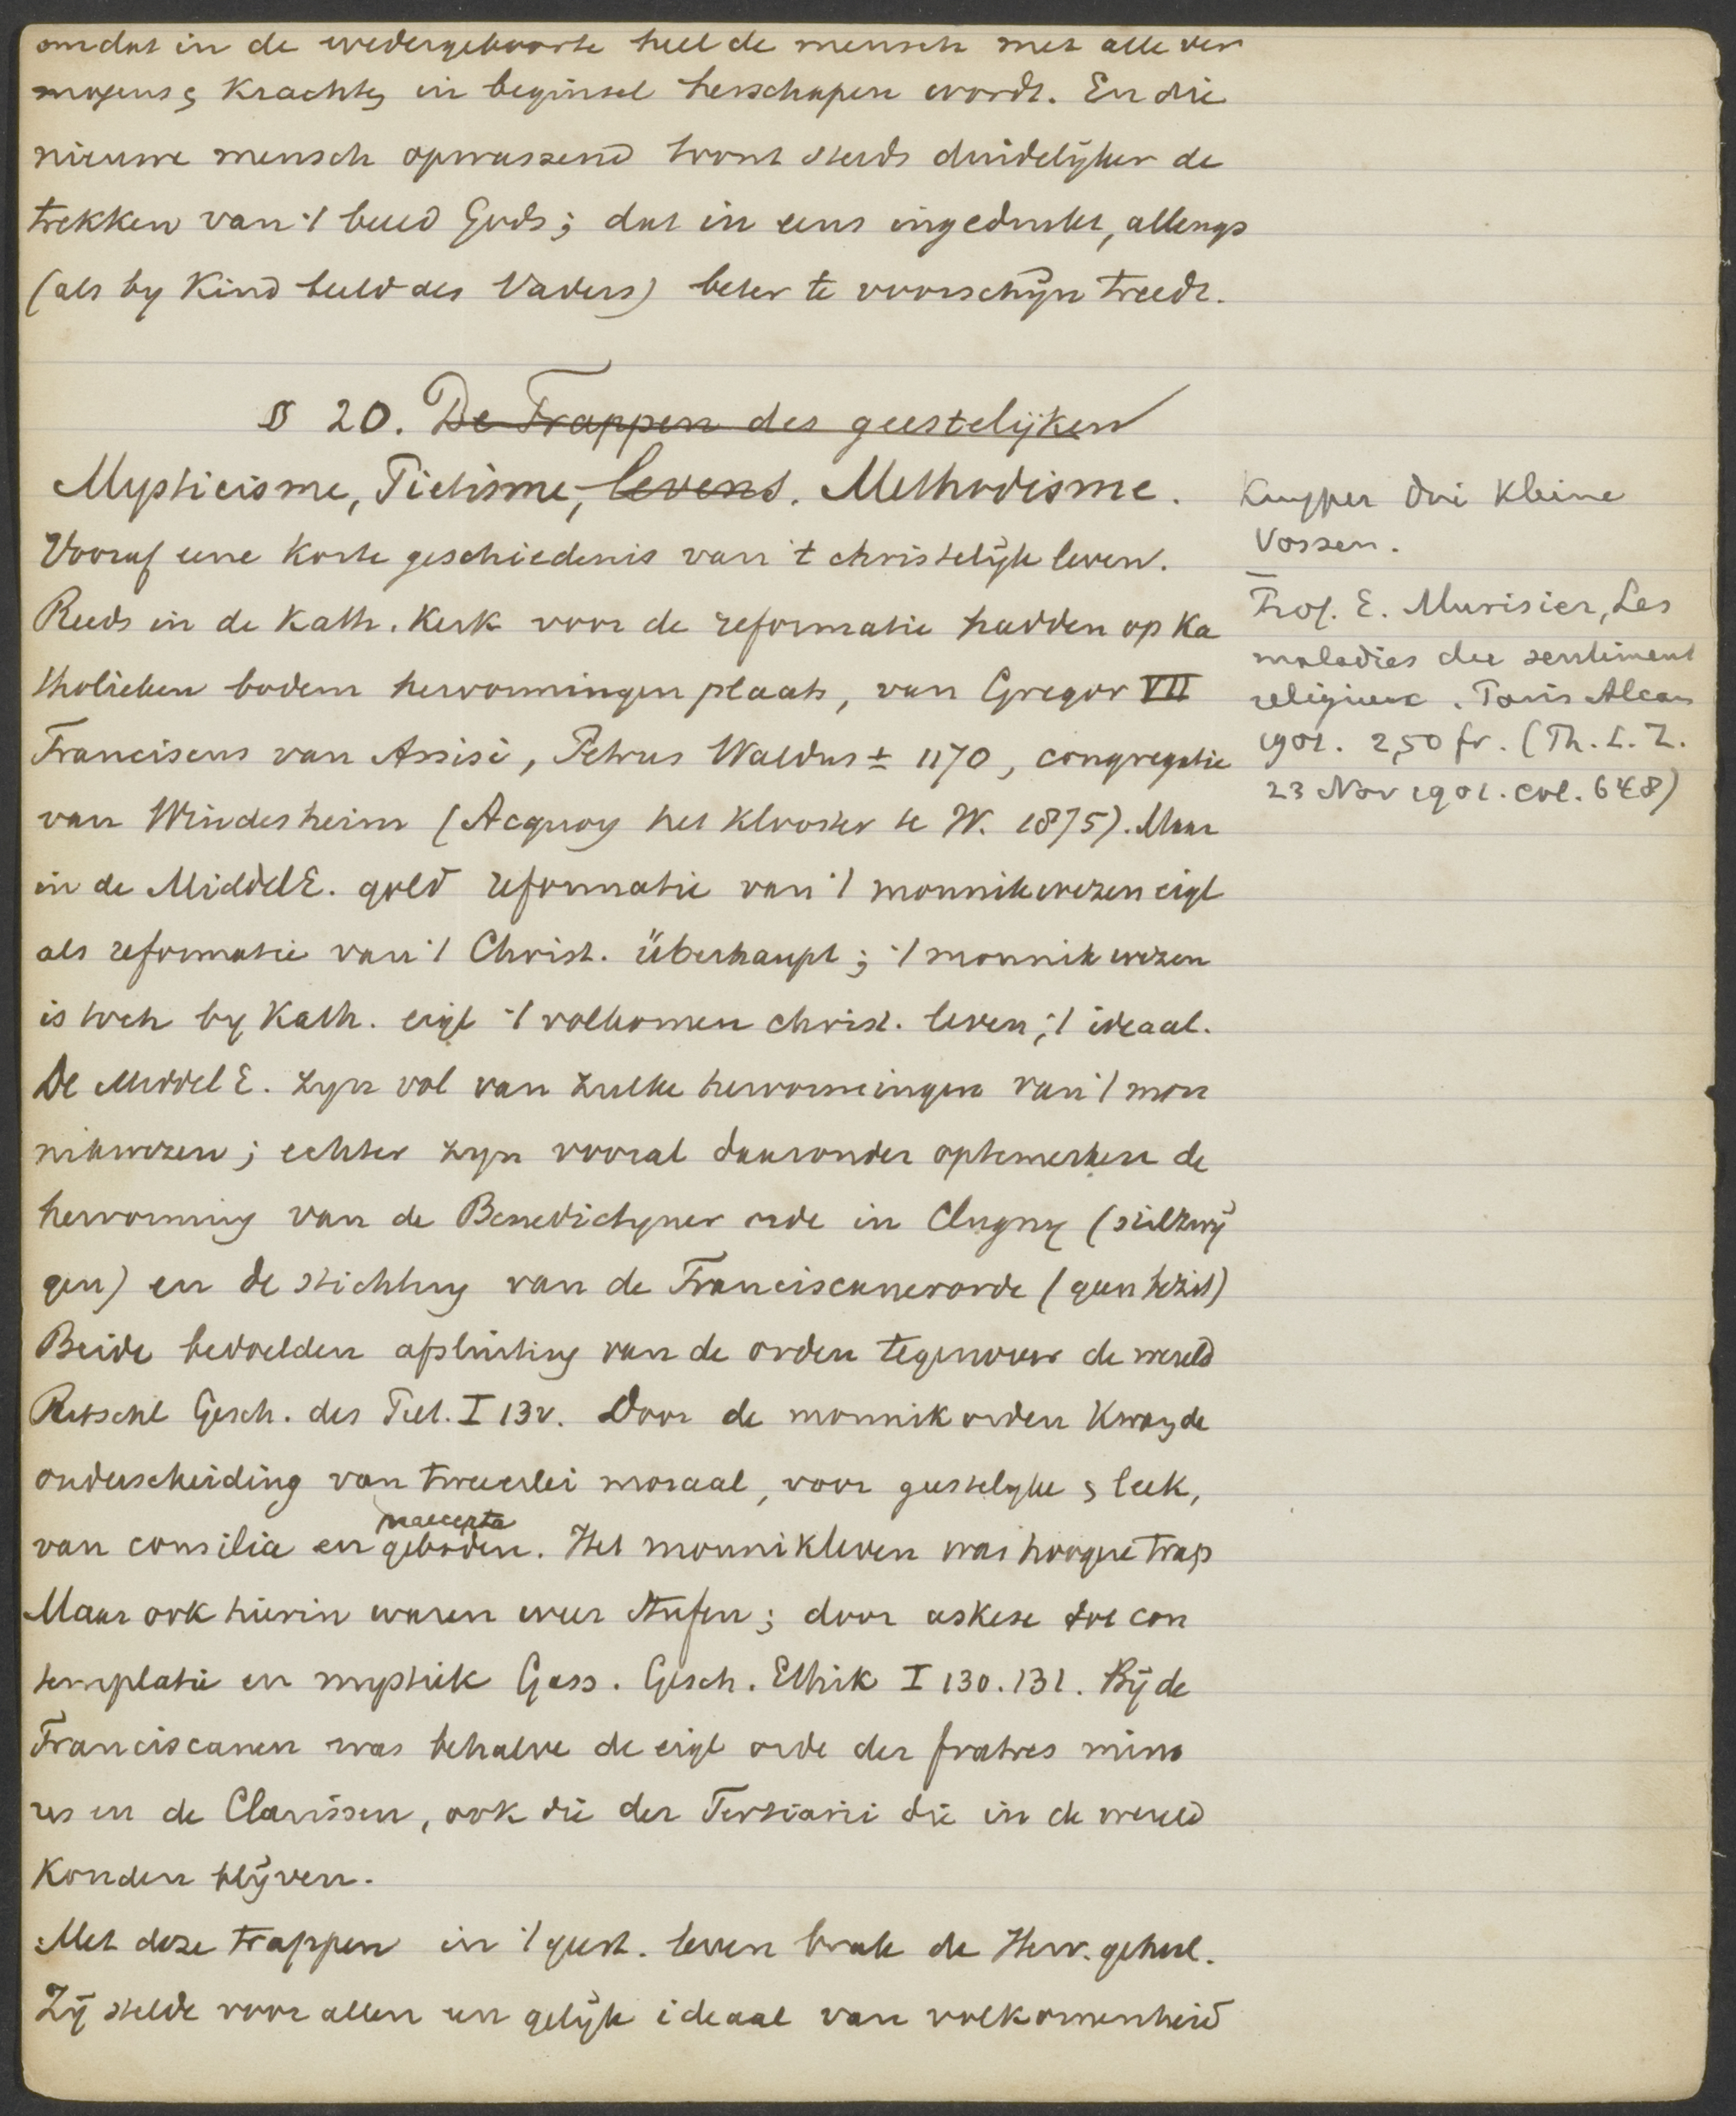 omdat in de wedergeboorte heel de mensch met alle ver
mogens & krachten in beginsel herschapen wordt. En die
nieuwe mensch opwassend toont steeds duidelijker de
trekken van 't beeld Gods; dat in eens ingedrukt, allengs
(als by kind beeld des Vaders) beter te voorschijn treedt.
§ 20. De Trappen des geestelijken
Mysticisme, Pietisme, levens. Methodisme.
Vooraf eene korte geschiedenis van 't christelijk leven.
Reeds in de Kath. Kerk voor de reformatie hadden op ka
tholieken bodem hervormingen plaats, van Gregor VII
Franciscus van Assisi, Petrus Waldus ± 1170, congregatie
van Windesheim (Acquoy het klooster te W. 1875). Maar
in de MiddelE. gold reformatie van 't monnikwezen eigl
als reformatie van 't Christ. überhaupt; 't monnikwezen
is toch by Kath. eigl 't volkomen christ. leven; 't ideaal.
De MiddelE. zyn vol van zulke hervormingen van 't mon
nikwezen; echter zyn vooral daaronder optemerken de
hervorming van de Benedictyner orde in Clugny (stilzwij
gen) en de stichting van de Franciscanerorde (geen bezit)
Beide bedoelden afsluiting van de orden tegenover de wereld
Ritschl Gesch. des Piet. I 13v. Door de monnikorden kwam de
onderscheiding van tweeerlei moraal, voor geestelyke & leek,
van consilia en geboden. Het monnikleven was hoogere trap
praecepta
Maar ook hierin waren weer Stufen; door askese tot con
templatie en mystiek Gass. Gesch. Ethik I 130.131. Bij de
Franciscanen was behalve de eigl orde der fratres mino
res en de Clarissen, ook die der Tertiarii die in de wereld
konden blijven.
Met deze trappen in 't geest. leven brak de Herv. geheel.
Zij stelde voor allen een gelijk ideaal van volkomenheid
Kuyper Drie kleine
Vossen.
Prof. E. Murisier, Les
maladies du sentiment
religieux. Paris Alcan
1901. 2,50 fr. (Th. L. Z.
23 Nov 1901. col. 648)